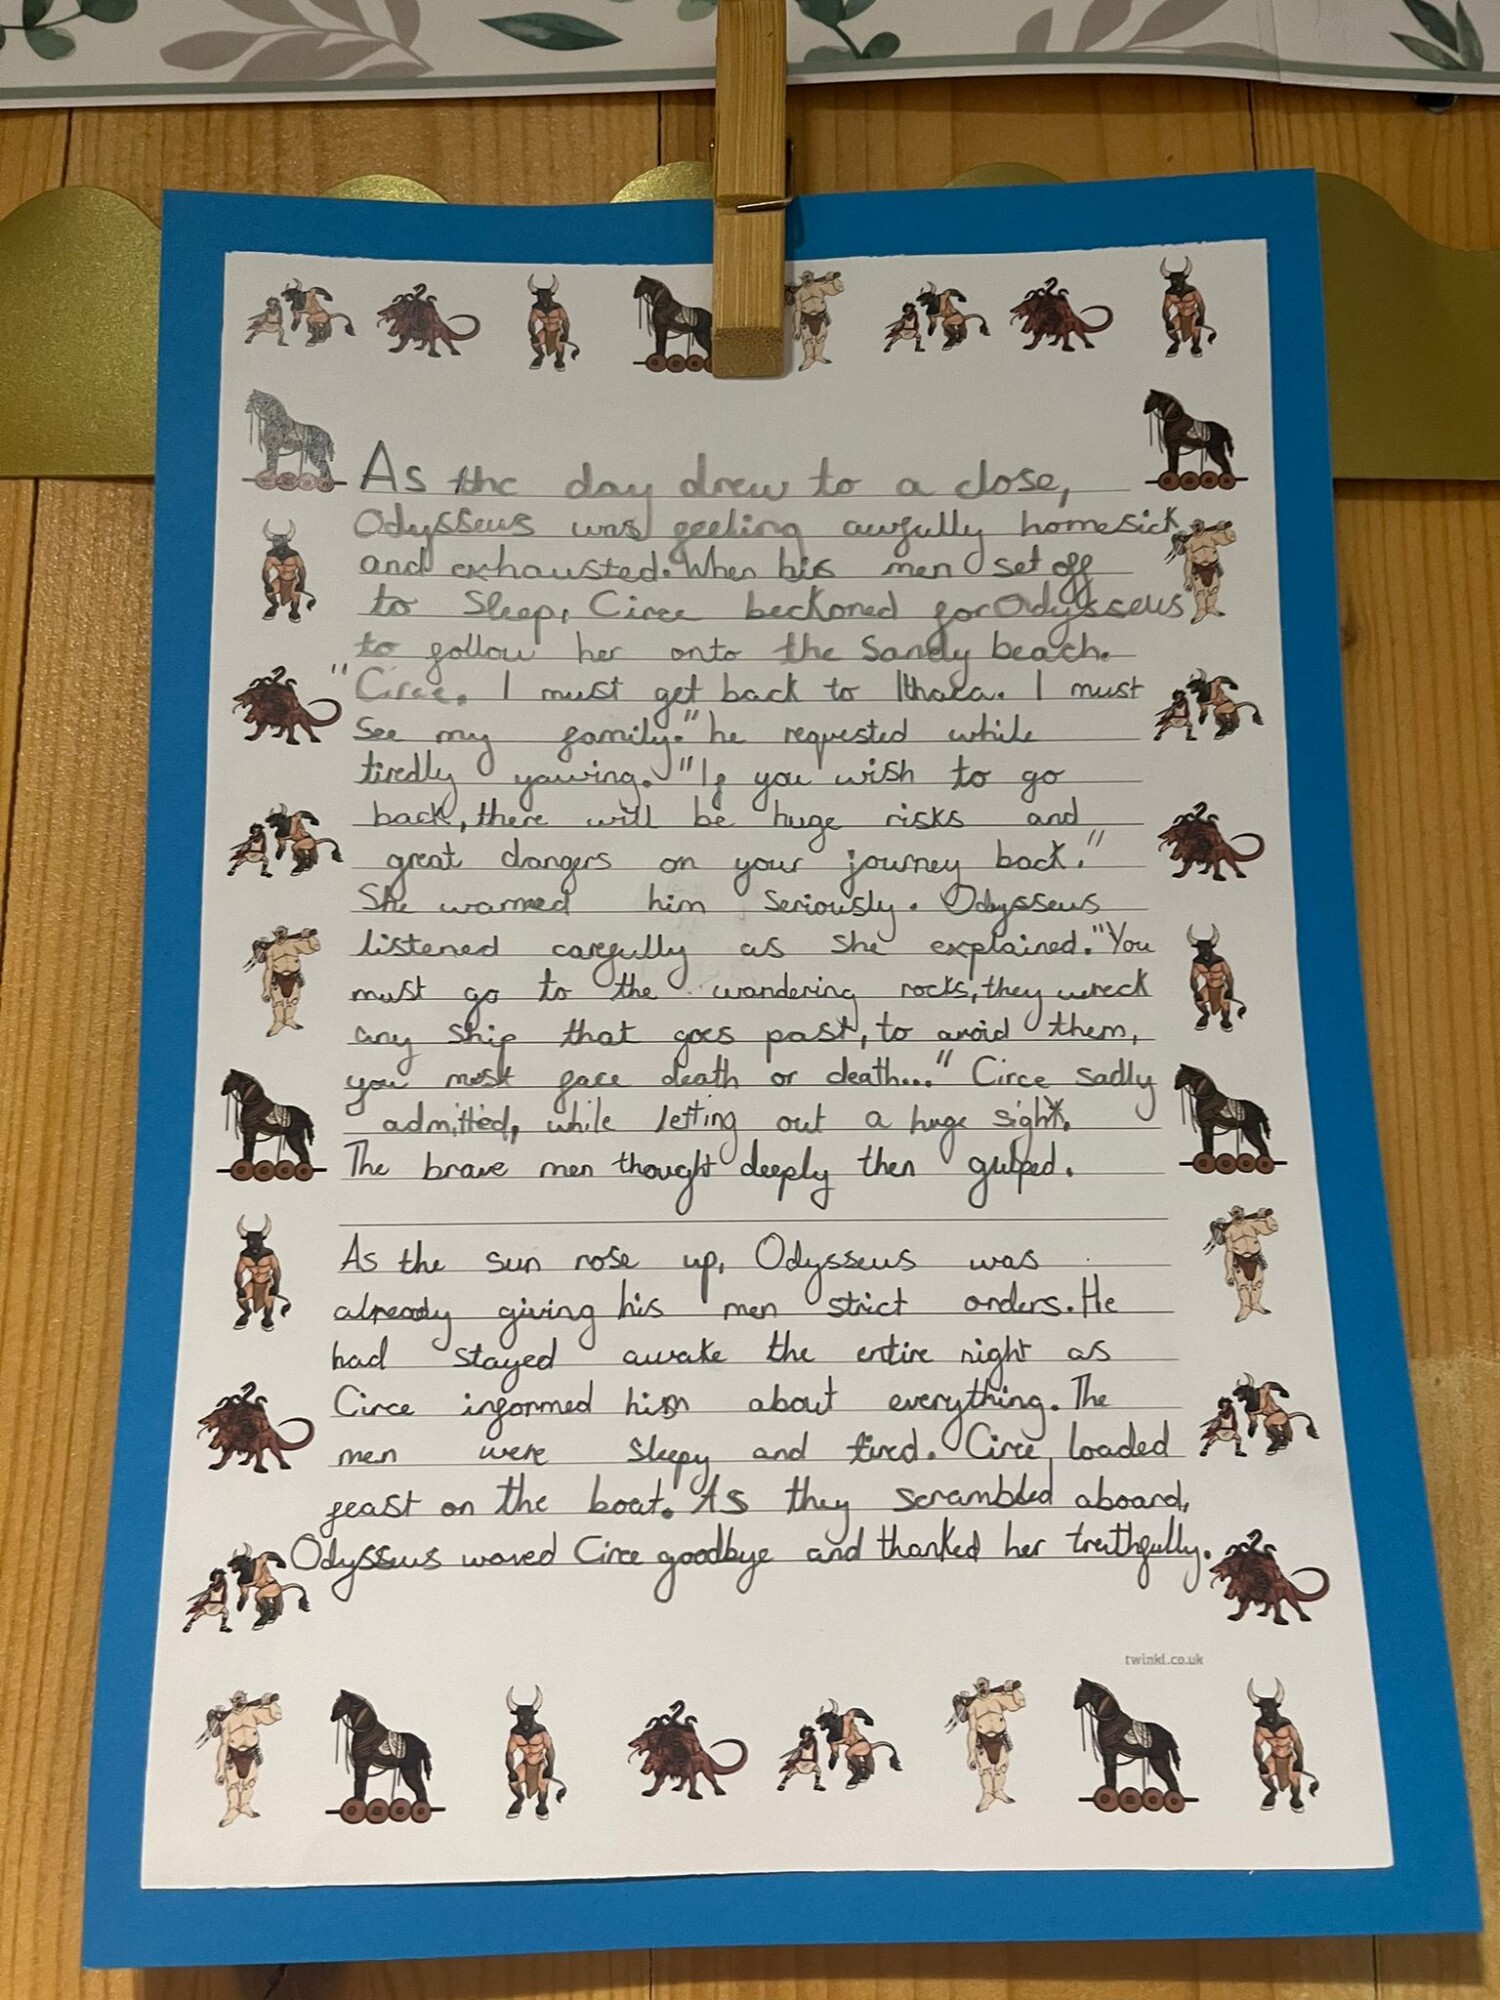 As the day drew to a close,
Odysseus was feeling awfully homesick
and exhausted. When his men set off
to sleep, Circe beckoned for Odysseus
to follow her onto the sandy beach.
"Circe, I must get back to Ithaca. I must
see my family." he requested while
tiredly yawing. "If you wish to go
back, there will be huge risks and
great dangers on your journey back."
She warned him seriously. Odysseus
listened carefully as she explained. "You
must go to the wandering rocks, they wreck
any ship that goes past, to avoid them,
you most face death or death..." Circe sadly
admitted, while letting out a huge sigh.
The brave men thought deeply then gulped.
As the sun rose up, Odysseus was
already giving his men strict orders. He
had stayed awake the entire night as
Circe informed him about everything. The
men were sleepy and tired. Circe loaded
feast on the boat. As they scrambled aboard,
Odysseus waved Circe goodbye and thanked her truthfully.
twinkl.co.uk